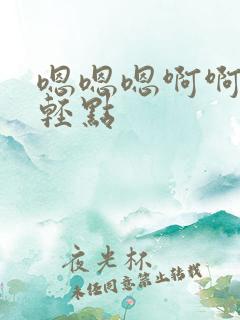 嗯嗯嗯啊啊
輕點
夜光杯
未经同意禁止转载